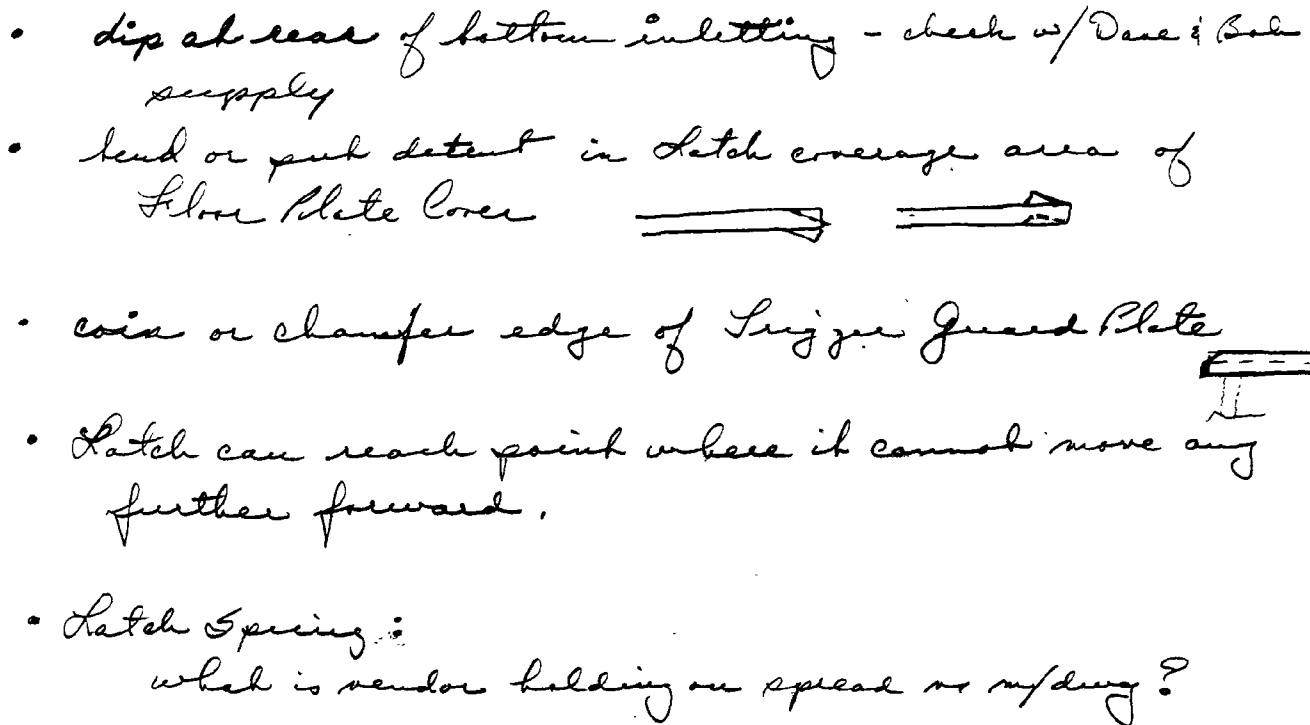 • dip at rear of bottom inletting - check w/ Dave & Bob
supply
• bend or put detent in Latch coverage area of
Floor Plate Cover
• coin or chamfer edge of Trigger Guard Plate
• Latch can reach point where it cannot move any
further forward.
• Latch Spring:
what is vendor holding on spread vs m/dwg?